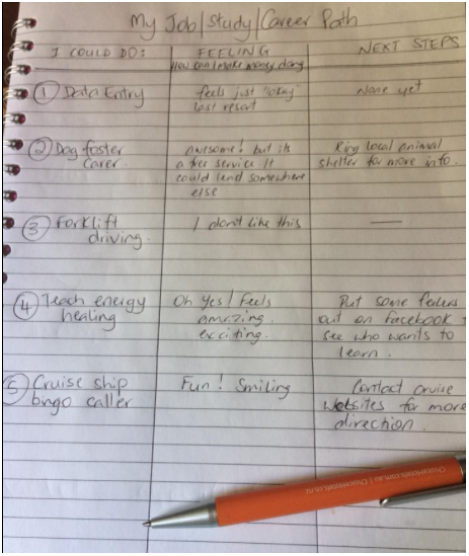 My Job/Study/Career Path
I COULD DO: FEELING NEXT STEPS
How can I make money doing
① Data Entry feels just "okay" None yet
last resort
② Dog foster awesome! but its Ring local animal
carer. a free service It shelter for more info.
could lead somewhere
else
③ Forklift I don't like this —
driving.
④ Teach energy Oh Yes! Feels Put some feelers
healing amazing out on Facebook t
exciting. see who wants to
learn.
5 Cruise ship Fun! Smiling Contact cruise
bingo caller websites for more
direction.
ChoiceHotels.com.au | ChoiceHotels.co.nz